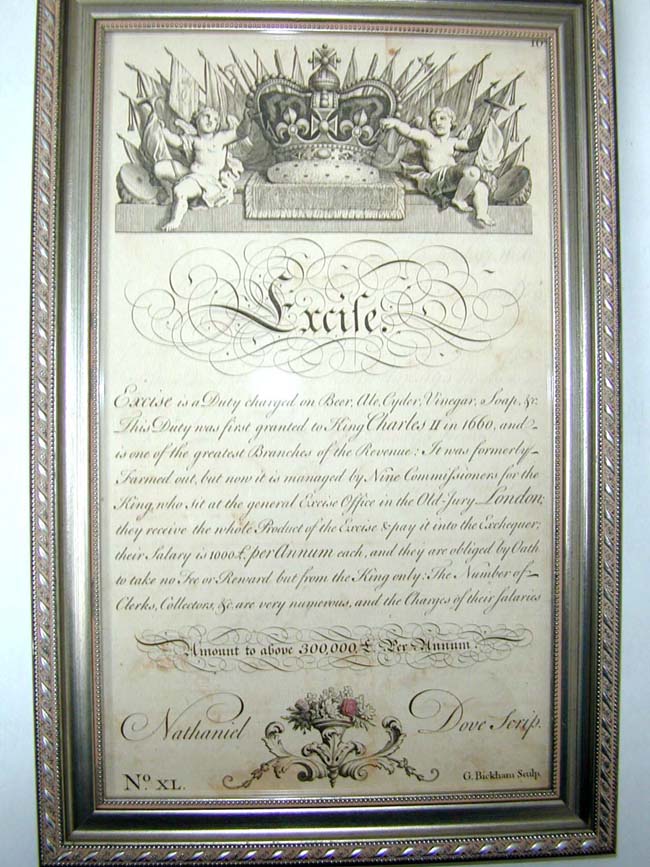 10
Excise.
Excise is a Duty charged on Beer, Ale, Cyder, Vinegar, Soap, &c.
This Duty was first granted to King Charles II in 1660, and
is one of the greatest Branches of the Revenue: It was formerly
Farmed out, but now it is managed by Nine Commissioners for the
King, who sit at the general Excise Office in the Old-Jury London;
they receive the whole Product of the Excise & pay it into the Exchequer;
their Salary is 1000£. per Annum each, and they are obliged by Oath
to take no Fee or Reward but from the King only: The Number of
Clerks, Collectors, &c. are very numerous, and the Charges of their salaries
Amount to above 300,000 £ Per Annum.
Nathaniel Dove Scrip.
No. XL.
G. Bickham Sculp.